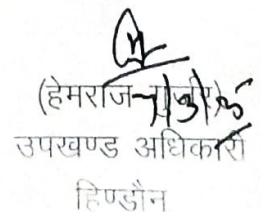 (हेमराज
उपखण्ड अधिकारी
हिण्डौन